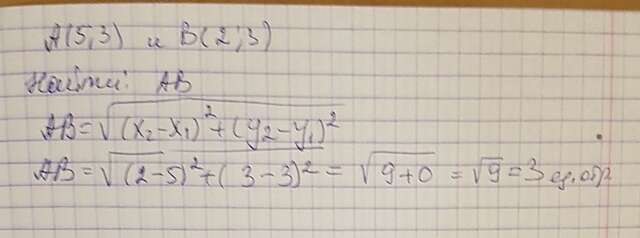 A(5;3) и B(2;3)
Найти: AB
AB=√(x₂-x₁)²+(y₂-y₁)²
AB=√(2-5)²+(3-3)²=√9+0=√9=3 ед.